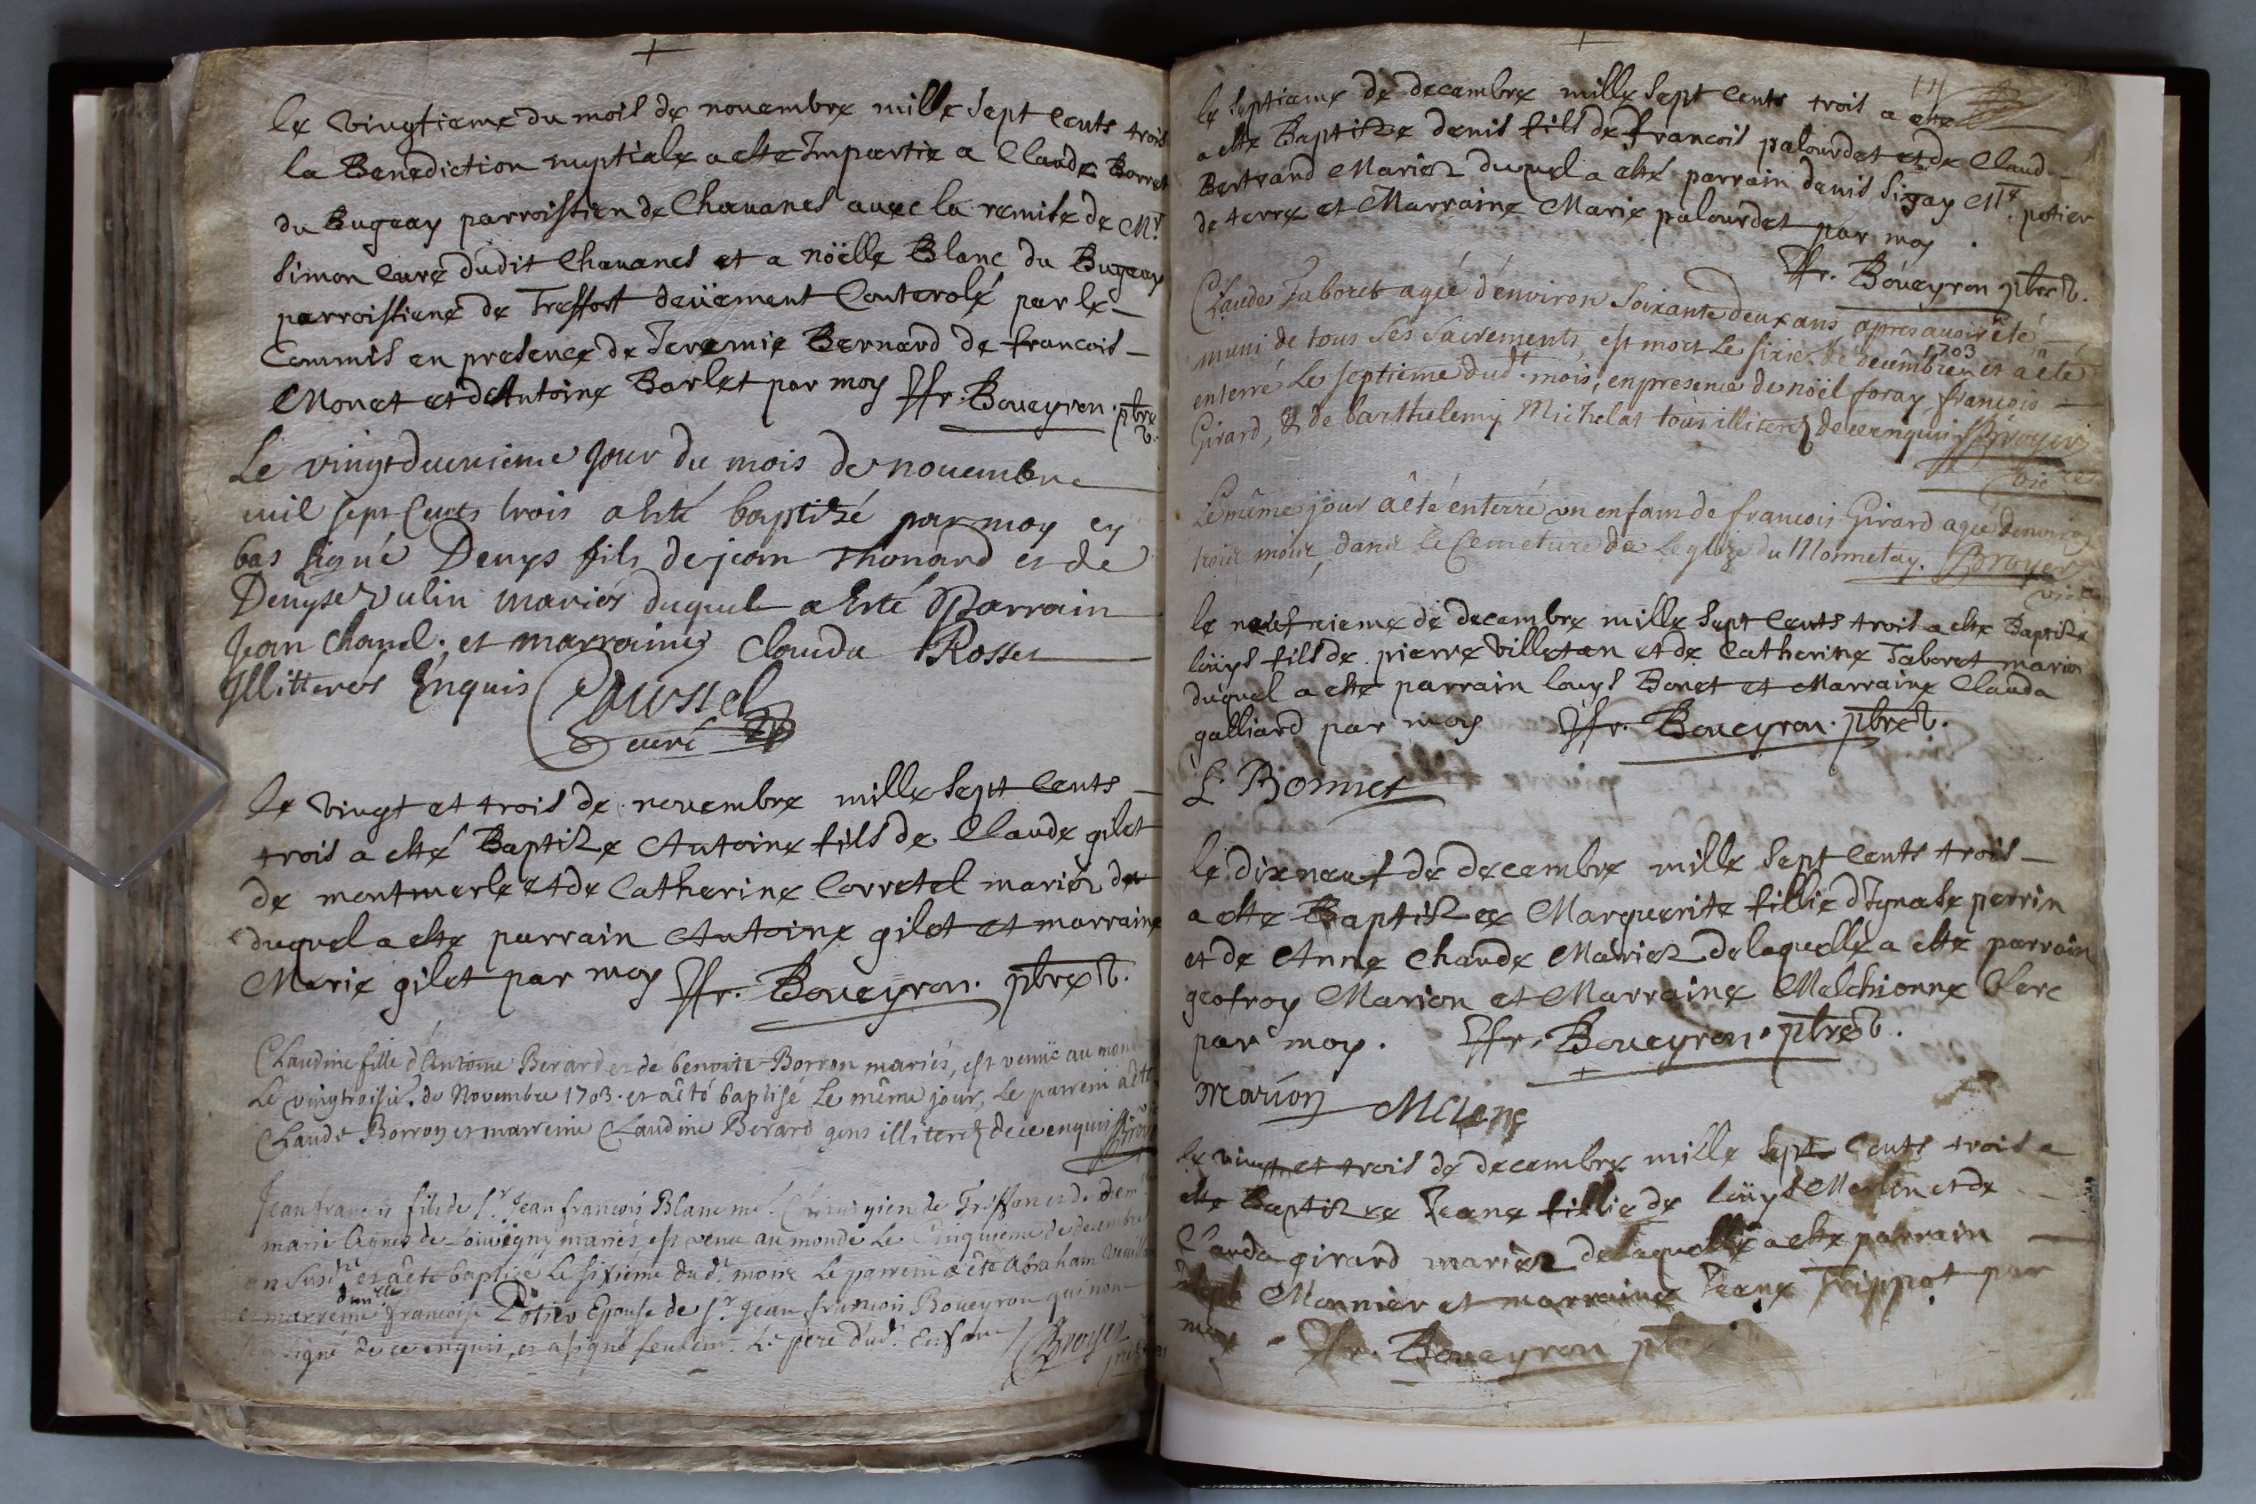 le vingtieme du mois de novembre mille sept cents trois
la Benediction nuptiale a este Impartie a Claude Borret
du Bugeay parroissien de Chavanes avec la remise de Mr.
Simon Curé dudit Chavanes et a nöelle Blanc du Bugeay
parroissiene de Treffort deüement Conterolé par le
Commis en presence de Jeremie Bernard de francois
Monet et d'Antoine Barlet par moy Ffr. Boueyron. pbre v.
Le vingt deuxieme Jour du mois de novembre
mil sept Cents trois a esté baptizé par moy cy
bas signé Denys fils de jean Thonard et de
Denyse Vulin mariés duquel a esté parrain
Jean Chanel. et marraine Clauda Rosset
Illitterés Enquis Roussel
curé
le vingt et trois de novembre mille sept cents
trois a esté Baptize Antoine fils de Claude gilet
de montmerle et de Catherine Corretel mariez
duquel a este parrain Antoine gilet et marraine
Marie gilet par moy Ffr. Boueyron. pbre v.
Claudine fille d'Antoine Berard et de benoite Borron mariés, est venüe au monde
Le vingtroisie. de Novembre 1703. et a êté baptisé Le même jour, Le parrein a êté
Claude Borron et marreine Claudine Berard gens illiterez de ce enquis Broyer
Jean françois fils de Sr. Jean françois Blanc me. Chirurgien de Treffort et de
marie Agnes de Louvigny mariés, est venu au monde Le Cinquieme de decembre
an Susdt. et a êté baptisé Le sixieme dudt. mois Le parrein a êté Abraham
et marreine dmlle françoise Potier Epouse de Sr. Jean françois Boueyron qui n'ont
signé de ce enquis, et a signé seulemt. Le pere dudt. Enfant Broyer
le septieme de decembre mille sept cents trois a este
a este Baptize denis fils de francois palourdet et de Claud
Bertrand Mariez duquel a esté parrain denis sigay Mte. potier
de terre et Marraine Marie palourdet par moy.
Ffr. Boueyron pbre v.
Claude Taboret agée d'environ soixante deux ans après avoir êté
muni de tous ses sacrements, est mort Le sixie. de decembre 1703 et a êté
enterré Le septieme dudt. mois, en presence de noël foray, françois
Girard, & de barthelemy Michelat tous illiterez de ce enquis Broyer
vicre
Le même jour a êté enterré un enfant de francois Girard agée d'environ
trois mois, dans Le Cemeture de Leglize du Monnetay. Broyer
vicre
le neufvieme de decembre mille sept cents trois a este Baptize
loüys fils de pierre Villetan et de Catherine Taboret mariez
duquel a este parrain louys Bonet et Marraine Clauda
galliard par moy Ffr. Boueyron. pbre v.
L. Bonnet
le dix neuf de decembre mille sept cents trois
a este Baptizee Marguerite fillie d'Ignase perrin
et de Anne Chaude Mariez de laquelle a este parrain
geofroy Marion et Marraine Melchionne Clerc
par moy. Ffr. Boueyron. pbre v.
marion MClerc
le vingt et trois de decembre mille sept cents trois a
este Baptizee Jeane fillie de loüys Merlin et de
Clauda girard mariez de laquelle a este parrain
Monnier et marraine Jeane Trippot par
moy Ffr. Boueyron